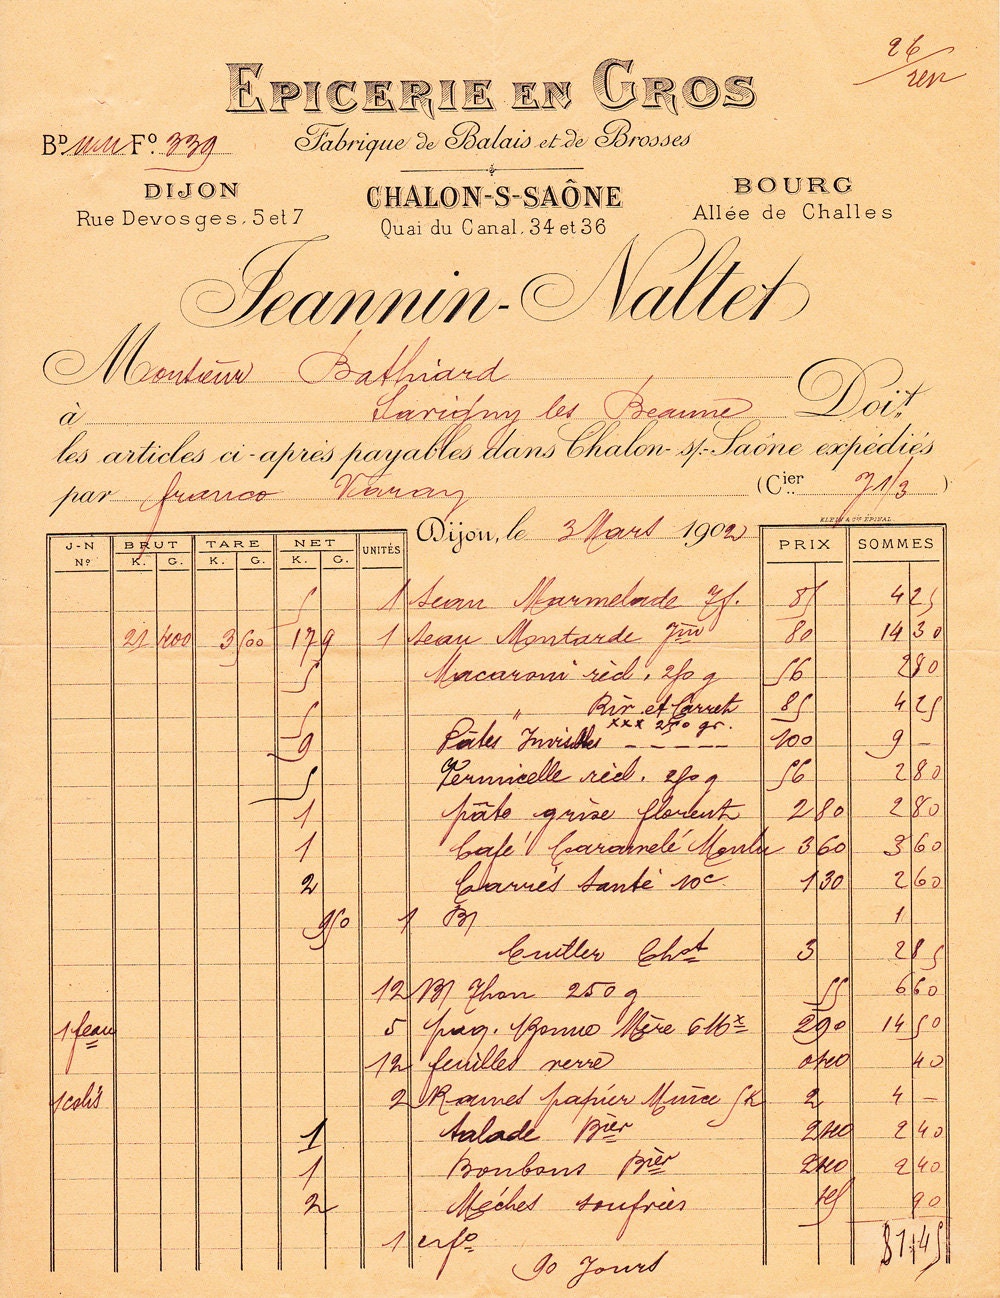 96
EPICERIE EN GROS
Bᴰ Fº. 339
Fabrique de Balais et de Brosses
DIJON
Rue Devosges, 5 et 7
CHALON-S-SAÔNE
Quai du Canal, 34 et 36
BOURG
Allée de Challes
Jeannin-Naltet
Monsieur Bathiard
à Savigny les Beaune Doit
les articles ci-après payables dans Chalon-s/-Saône expédiés
par franco Varay (Cier 71/3)
KLEIN & Cie EPINAL
Dijon, le 3 Mars 1902
J-N Nº BRUT K. G. TARE K. G. NET K. G. UNITÉS PRIX SOMMES
5 1 Seau Marmelade 7f. 85 4 25
21 400 3 500 17 9 1 Seau Moutarde 80 14 30
5 Macaroni réd. 250 g 56 2 80
5 " Riv. et Carret 85 4 25
xxx 250 gr.
9 Pâtes 100 9 –
5 Vermicelle réd. 250 g 56 2 80
1 pâte grise florent 2 80 2 80
1 Café Caramelé Moulu 3 60 3 60
2 Carrés Santé 10c 1 30 2 60
950 1 B/ 1
Cuiller Chat 3 2 85
12 B/ Thon 250 g 55 6 60
1 seau 5 paq. Bonne Mère 290 14 50
12 feuilles verre 0400 40
1 colis 2 Rames papier Mince 5k 2 4 –
1 Salade Bier 2 40 2 40
1 Bonbons Bier 2 40 2 40
2 Mèches soufrées 45 90
1 81.45
90 Jours